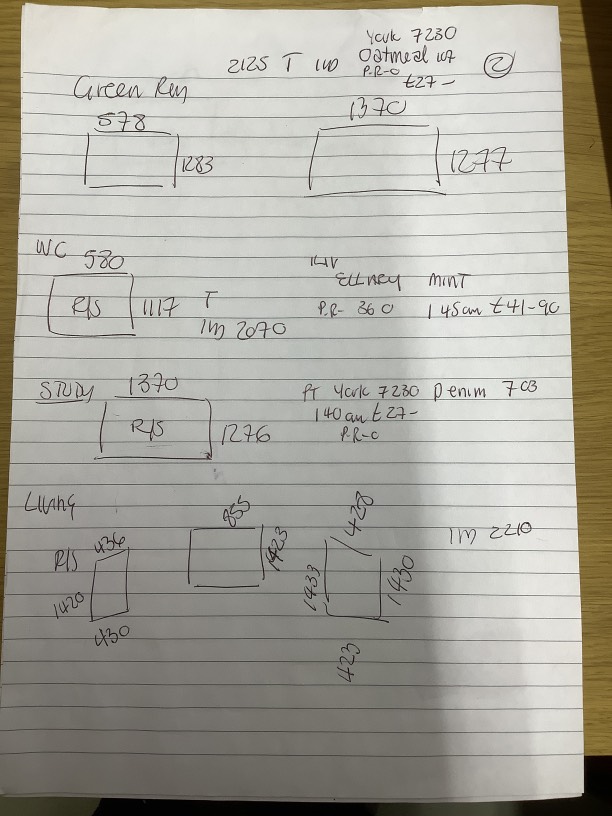 York 7230
2125 T Oatmeal
P.R-O 2
£27-
Green Rm
578 1370
1283 1277
WC 580
ELLNEY MINT
R/S 1117 T P.R- 36 0 145cm £41-90
1m 2070
STUDY 1370 PT York 7230 Denim 703
R/S 1276 140cm £27-
P.R-O
Living
855 428
R/S 436 1423 1m 2210
1420 1433 1430
430 423